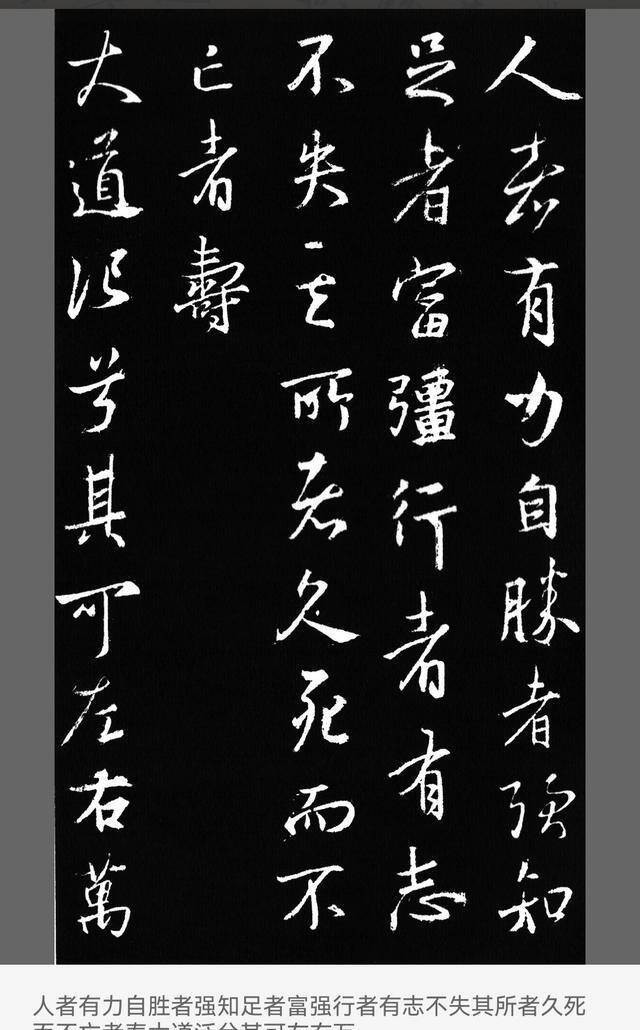 人者有力自勝者强知
足者富彊行者有志
不失其所者久死而不
亡者壽
大道汎兮其可左右萬
人者有力自胜者强知足者富强行者有志不失其所者久死